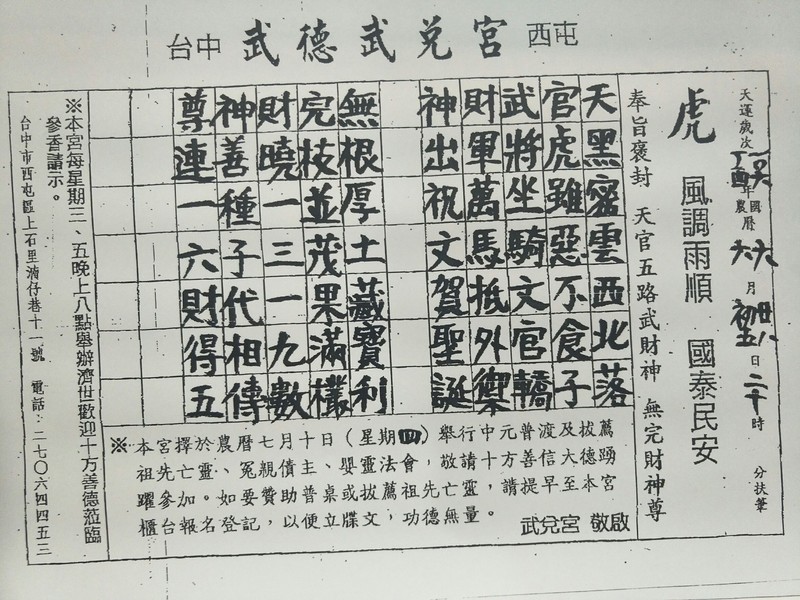 台中 武德武兌宮 西屯
天運歲次 年 農曆 國曆 月 初五 廿八 日 二十時 分扶筆
虎 風調雨順 國泰民安
奉旨褒封 天官五路武財神 無完財神尊
天黑密雲西北落
官虎雖惡不食子
武將坐騎文官轎
財軍萬馬抵外禦
神出祝文賀聖誕
無根厚土藏寶利
完枝並茂果滿欉
財曉一三一九數
神善種子代相傳
尊連一六財得五
※本宮擇於農曆七月十日(星期四)舉行中元普渡及拔薦
祖先亡靈、冤親債主、嬰靈法會，敬請十方善信大德踴
躍參加。如要贊助普桌或拔薦祖先亡靈，請提早至本宮
櫃台報名登記，以便立牒文，功德無量。
武兌宮 敬啟
※本宮每星期三、五晚上八點舉辦濟世歡迎十方善德蒞臨
參香請示。
台中市西屯區上石里湳仔巷十一號 電話：二七0六四四五三